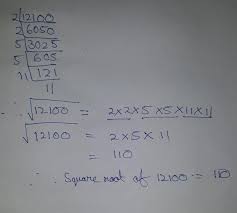 2|12100
2|6050
5|3025
5|605
11|121
11
∴ √12100 = 2×2×5×5×11×11
√12100 = 2×5×11
= 110
∴ Square root of 12100 = 110